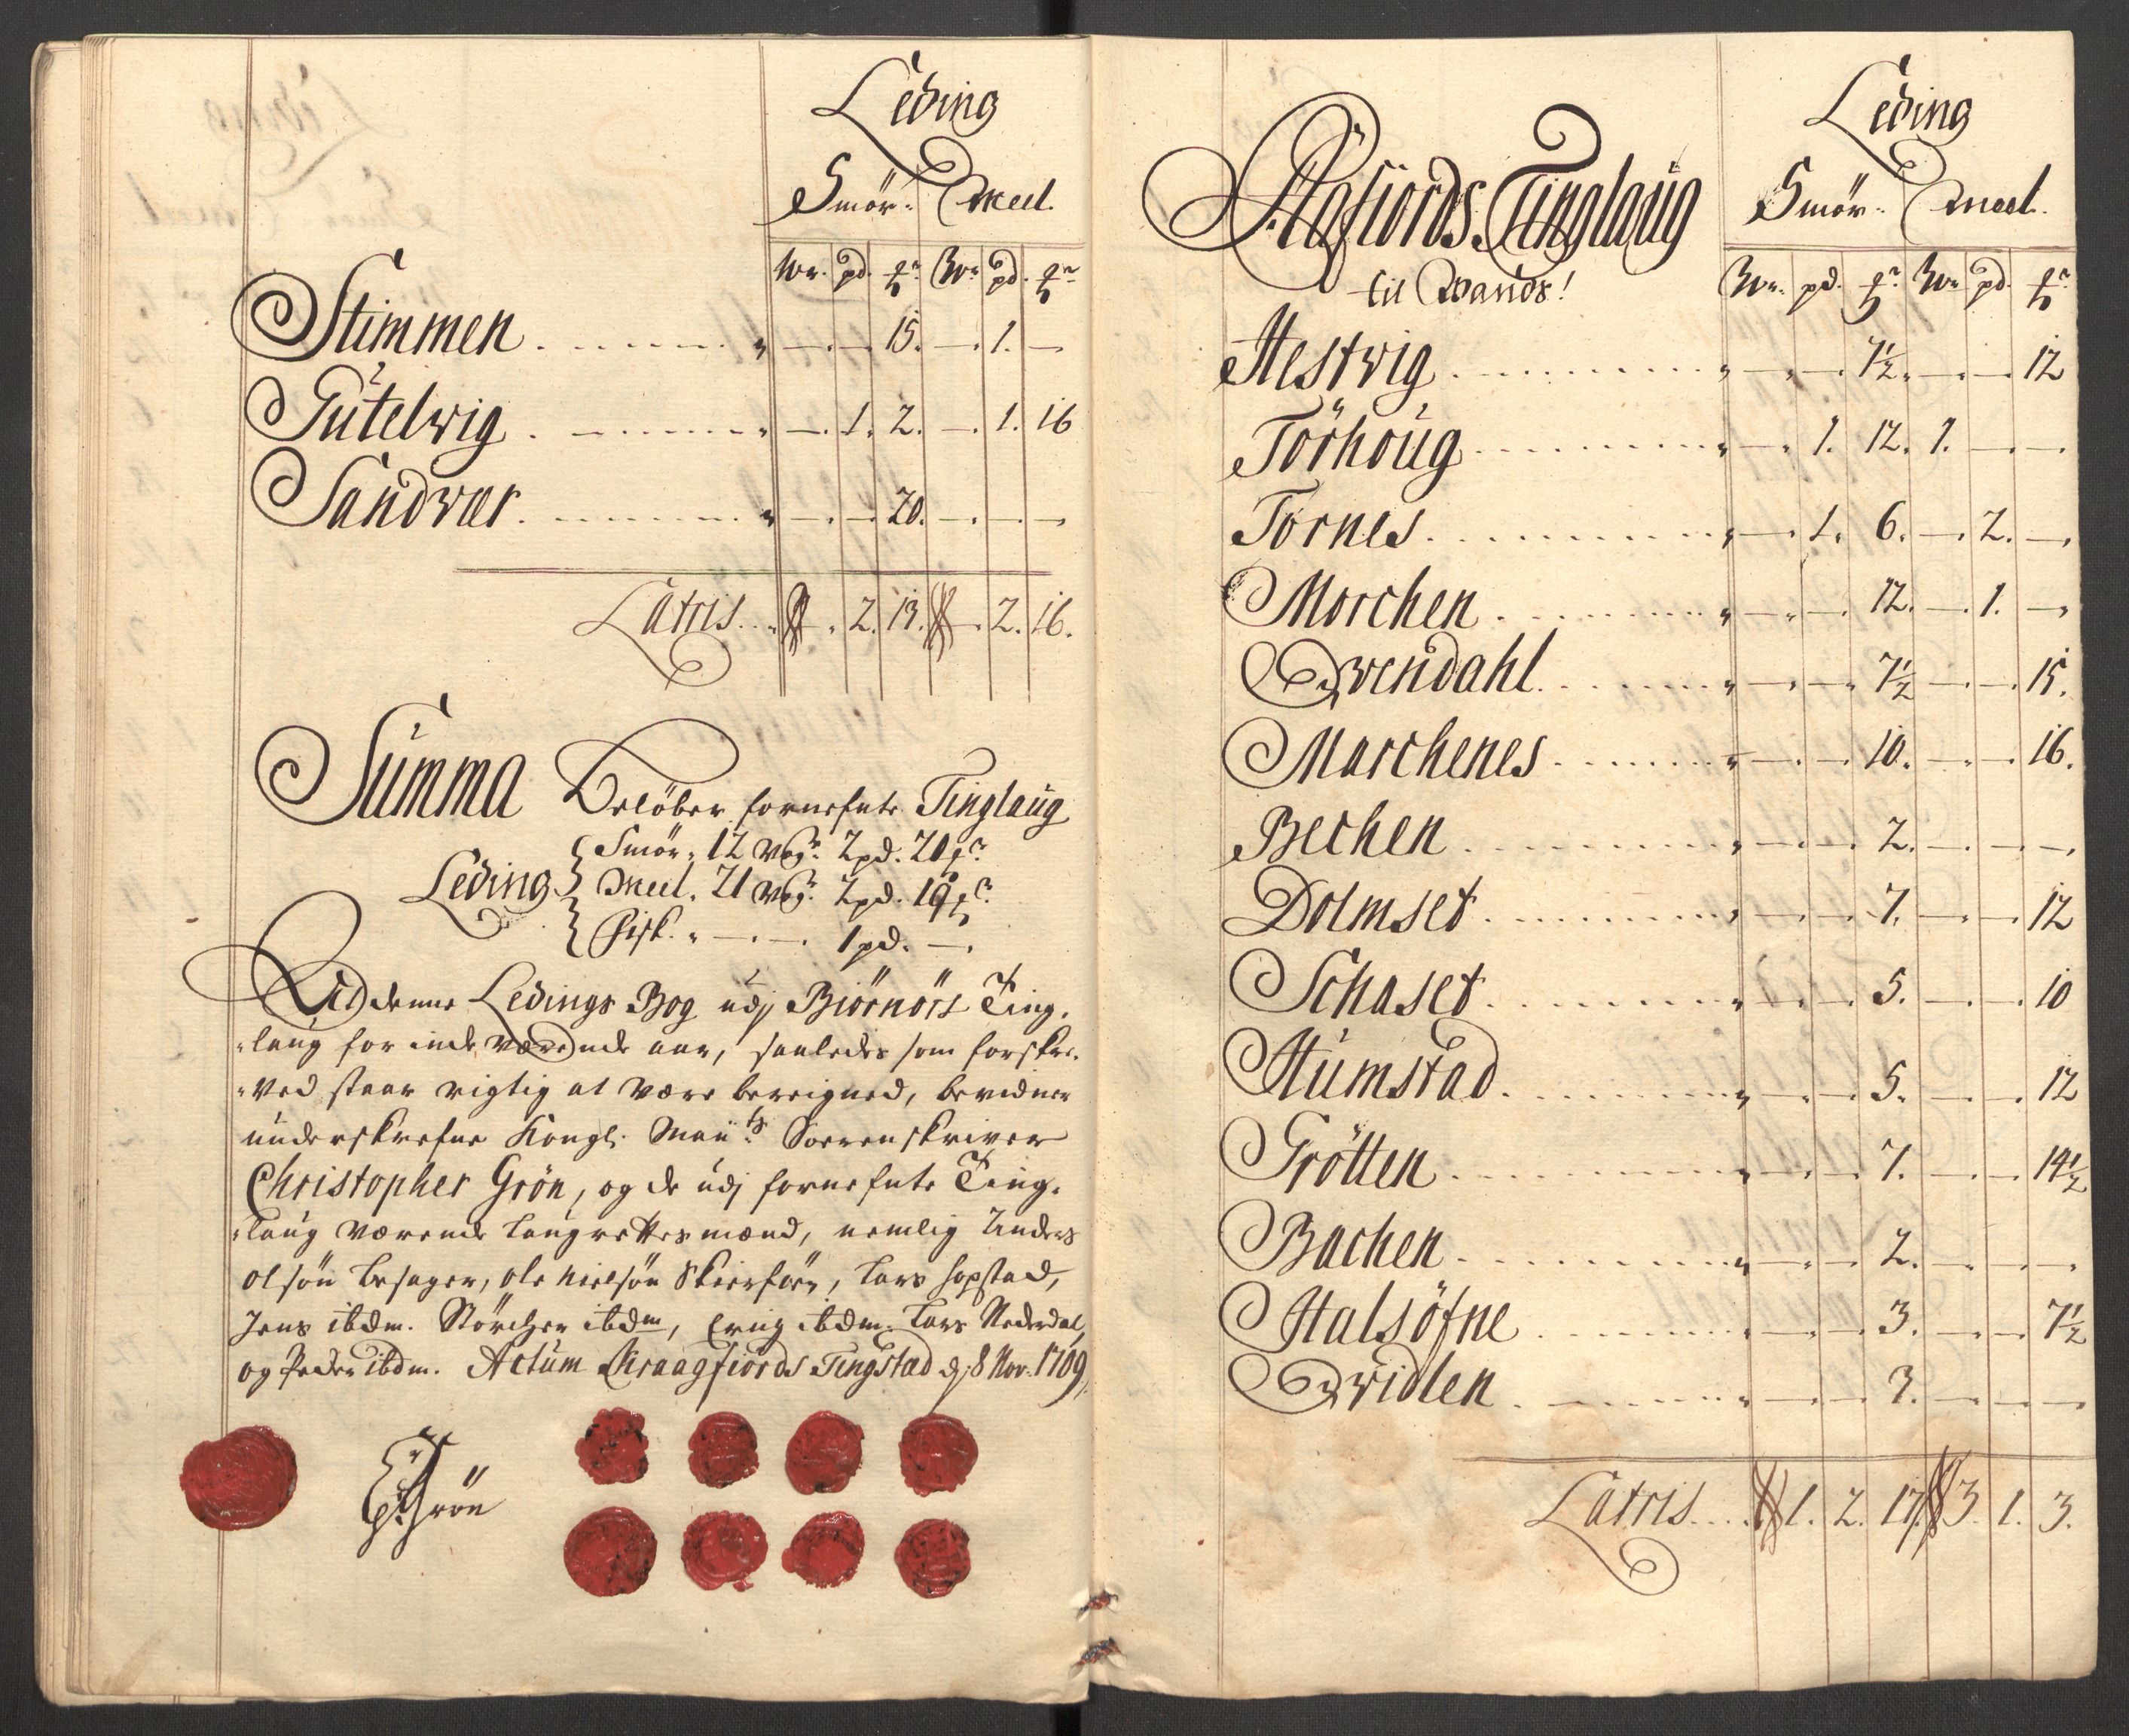 Leding
Smör. Meel.
W. pd. ℔ W. pd. ℔
Stimmen . . . . . . . „ — — 15. — 1. —
Gütelwig . . . . . . . „ — 1. 2. — 1. 16
Sandvær . . . . . . . „ — — 20. — — —
Latris . . . 2. 13. 2. 16.
Summa Beløber fornefnte Tinglaüg
Leding Smör. 12 wog. 2 pd. 20 ℔
Meel. 21 wog. 2 pd. 19 ℔
Fisk. „ — — 1 pd. —
At denne Ledings Bog udj Biörnörs Ting,
laug for indeværende aar, saaledes som forskre,
ved staar rigtig at være bereigned, bevidner
underskrefne Kongl. May:ts Sorrenskriver
Christopher Grön, og de udj fornefnte Ting,
laug værende Laugrettesmænd, nemlig Anders
olsön Besager, ole nielsön Skierför, Lars hopstad,
Jens ibdm. Störcher ibdm, Erug ibdm. Lars Nederdal,
og Peder ibdm. Actum Kraagfiords Tingstad d. 8 Nov. 1709
Grön
Leding
Aafiords Tinglaüg Smör. Meel.
til Vands! W. pd. ℔ W. pd. ℔
Hestvig . . . . . . . „ — — 7½. — — 12
Törhoüg . . . . . . . „ — 1. 12. 1. — —
Tornes . . . . . . . „ — 1. 6. — 2. —
Morchen . . . . . . . „ — — 12. — 1. —
Qvendahl . . . . . . . „ — — 7½ — — 15.
Marchenes . . . . . . . „ — — 10. — — 16.
Bechen . . . . . . . „ — — 2. — — —
Dolmset . . . . . . . „ — — 7. — — 12
Schaset . . . . . . . „ — — 5. — — 10
Humstad . . . . . . . „ — — 5. — — 12
Grötten . . . . . . . „ — — 7. — — 14½
Bachen . . . . . . . „ — — 2. — — —
Halsöfne . . . . . . . „ — — 3. — — 7½
Qvidlen . . . . . . . „ — — 3. — — —
Latris . . . 1. 2. 17. 3. 1. 3.